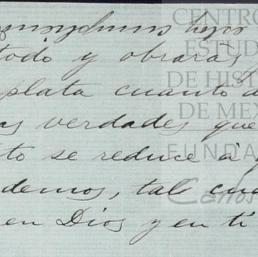 todo y obraras
plata cuanto a
as verdades que
to se reduce a' q
demos, tal cua
en Dios y en ti
CENTRO
ESTUD
DE HIST
DE MEX
FUNDA
Carlos